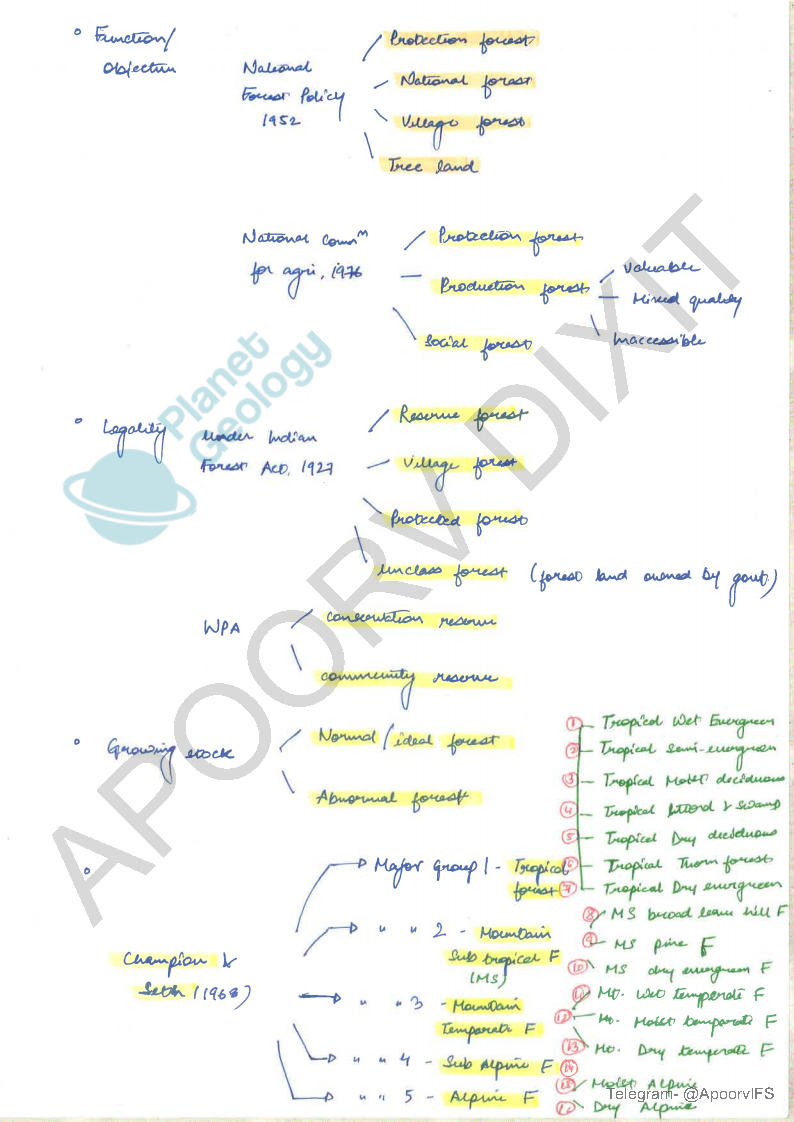 ° Function/
Objective
National
Forest Policy
1952
Protection forest
National forest
Village forest
Tree land
National Commⁿ
for agri, 1976
Protection forest
Production forest
Valuable
Mixed quality
Inaccessible
Social forest
Planet
Geology
° Legality
under Indian
Forest Act, 1927
Reserve forest
Village forest
Protected forest
Unclass forest (forest land owned by govt.)
WPA
Conservation reserve
Community reserve
° Growing stock
Normal/ideal forest
Abnormal forest
° Champion &
Seth (1968)
Major Group 1 - Tropical
forest
① Tropical Wet Evergreen
② Tropical Semi-evergreen
③ Tropical Moist deciduous
④ Tropical littoral & swamp
⑤ Tropical Dry deciduous
⑥ Tropical Thorn forest
⑦ Tropical Dry evergreen
" " 2 - Mountain
Sub tropical F
(MS)
⑧ MS broad leave hill F
⑨ MS pine F
⑩ MS dry evergreen F
" " 3 - Mountain
Temparate F
⑪ Mt. Wet temperate F
⑫ Mt. Moist temparate F
⑬ Mt. Dry temperate F
" " 4 - Sub Alpine F ⑭
" " 5 - Alpine F
⑮ Moist Alpine
⑯ Dry Alpine
APOORV DIXIT
Telegram- @ApoorvIFS